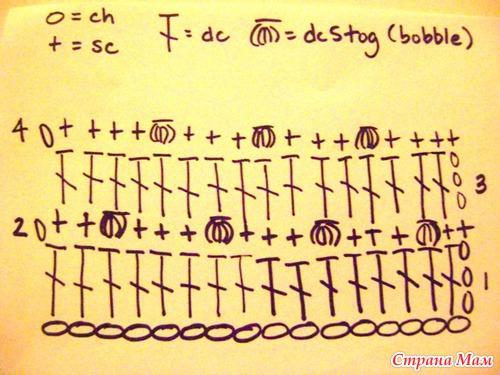 o = ch = dc = dc5tog (bobble)
+ = sc
4
3
2
1
Страна Мам